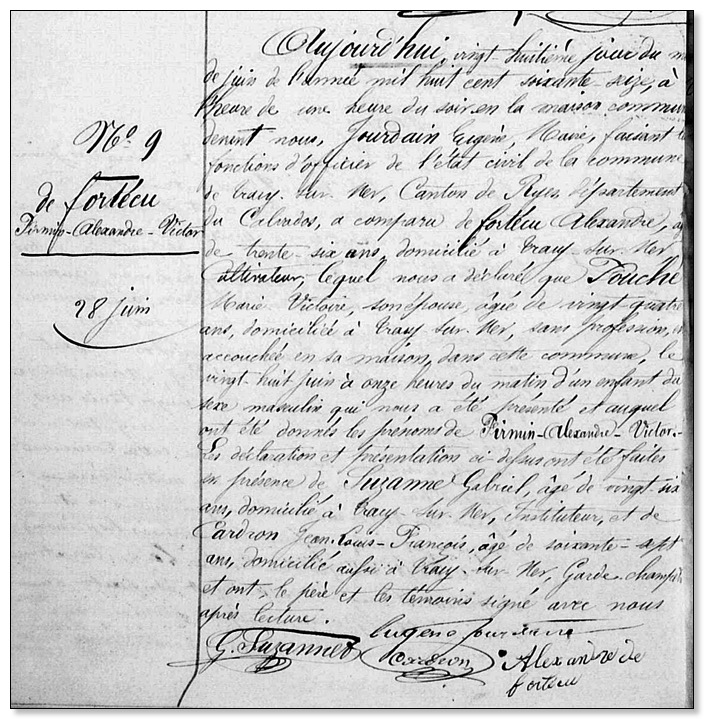 Nº 9
de fortécu
Firmin-Alexandre-Victor
28 juin
Aujourd'hui, vingt-huitième jour du m
de juin de l'année mil huit cent soixante-seize, à
l'heure de une heure du soir en la maison commun
devant nous, Jourdain Eugène, Maire, faisant l
fonctions d'officier de l'état civil de la commune
de Tracy sur Mer, Canton de Ryes département
du Calvados, a comparu de fortécu Alexandre, a
de trente-six ans, domicilié à Tracy-sur-Mer
Cultivateur, lequel nous a déclaré que Pouché
Marie Victoire, son épouse, âgée de vingt-quatre
ans, domiciliée à Tracy sur Mer, sans profession,
accouchée en sa maison, dans cette commune, le
vingt-huit juin à onze heures du matin d'un enfant du
sexe masculin qui nous a été présenté et auquel
ont été donnés les prénoms de Firmin-Alexandre-Victor.-
Les déclaration et présentation ci dessus ont été faites
en présence de Suzanne Gabriel, âgé de vingt-six
ans, domicilié à Tracy sur Mer, Instituteur, et de
Cardron Jean-Louis-François, âgé de soixante-sept
ans, domicilié aussi à Tracy-sur-Mer, Garde-champêt
et ont, le père et les témoins signé avec nous
après lecture.
G. Suzanne Eugène Jourdain
Cardron Alexandre de
fortécu